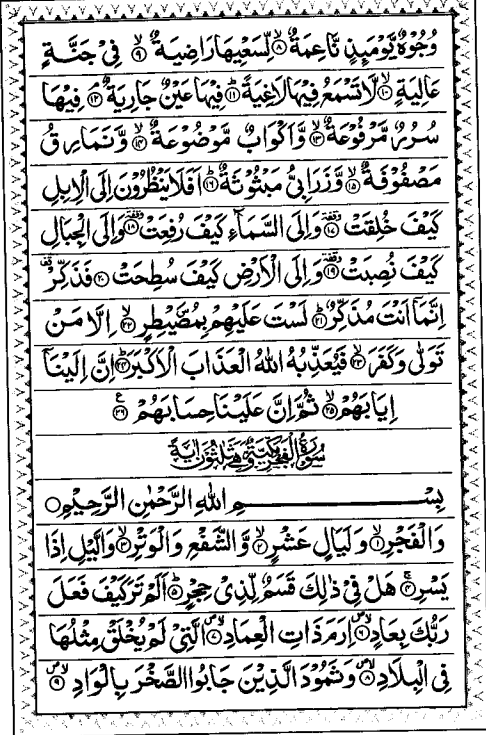 وُجُوْهٌ يَّوْمَئِذٍ نَّاعِمَةٌ ۙ﴿۸﴾ لِّسَعْيِهَا رَاضِيَةٌ ۙ﴿۹﴾ فِيْ جَنَّةٍ
عَالِيَةٍ ۙ﴿۱۰﴾ لَّا تَسْمَعُ فِيْهَا لَاغِيَةً ؕ﴿۱۱﴾ فِيْهَا عَيْنٌ جَارِيَةٌ ۘ﴿۱۲﴾ فِيْهَا
سُرُرٌ مَّرْفُوْعَةٌ ۙ﴿۱۳﴾ وَّاَكْوَابٌ مَّوْضُوْعَةٌ ۙ﴿۱۴﴾ وَّنَمَارِقُ
مَصْفُوْفَةٌ ۙ﴿۱۵﴾ وَّزَرَابِيُّ مَبْثُوْثَةٌ ؕ﴿۱۶﴾ اَفَلَا يَنْظُرُوْنَ اِلَى الْاِبِلِ
كَيْفَ خُلِقَتْ ۥ﴿۱۷﴾ وَاِلَى السَّمَآءِ كَيْفَ رُفِعَتْ ۥ﴿۱۸﴾ وَاِلَى الْجِبَالِ
كَيْفَ نُصِبَتْ ۥ﴿۱۹﴾ وَاِلَى الْاَرْضِ كَيْفَ سُطِحَتْ ﴿۲۰﴾ فَذَكِّرْ
اِنَّمَآ اَنْتَ مُذَكِّرٌ ؕ﴿۲۱﴾ لَسْتَ عَلَيْهِمْ بِمُصَۜيْطِرٍ ۙ﴿۲۲﴾ اِلَّا مَنْ
تَوَلّٰى وَكَفَرَ ۙ﴿۲۳﴾ فَيُعَذِّبُهُ اللّٰهُ الْعَذَابَ الْاَكْبَرَ ؕ﴿۲۴﴾ اِنَّ اِلَيْنَآ
اِيَابَهُمْ ۙ﴿۲۵﴾ ثُمَّ اِنَّ عَلَيْنَا حِسَابَهُمْ ﴿۲۶﴾
سُوْرَةُ الْفَجْرِ مَكِّيَّةٌ وَّهِيَ ثَلٰثُوْنَ اٰيَةً
بِسْمِ اللّٰهِ الرَّحْمٰنِ الرَّحِيْمِ
وَالْفَجْرِ ۙ﴿۱﴾ وَلَيَالٍ عَشْرٍ ۙ﴿۲﴾ وَّالشَّفْعِ وَالْوَتْرِ ۙ﴿۳﴾ وَالَّيْلِ اِذَا
يَسْرِ ۚ﴿۴﴾ هَلْ فِيْ ذٰلِكَ قَسَمٌ لِّذِيْ حِجْرٍ ؕ﴿۵﴾ اَلَمْ تَرَ كَيْفَ فَعَلَ
رَبُّكَ بِعَادٍ ۪ۙ﴿۶﴾ اِرَمَ ذَاتِ الْعِمَادِ ۪ۙ﴿۷﴾ الَّتِيْ لَمْ يُخْلَقْ مِثْلُهَا
فِي الْبِلَادِ ۪ۙ﴿۸﴾ وَثَمُوْدَ الَّذِيْنَ جَابُوا الصَّخْرَ بِالْوَادِ ۪ۙ﴿۹﴾